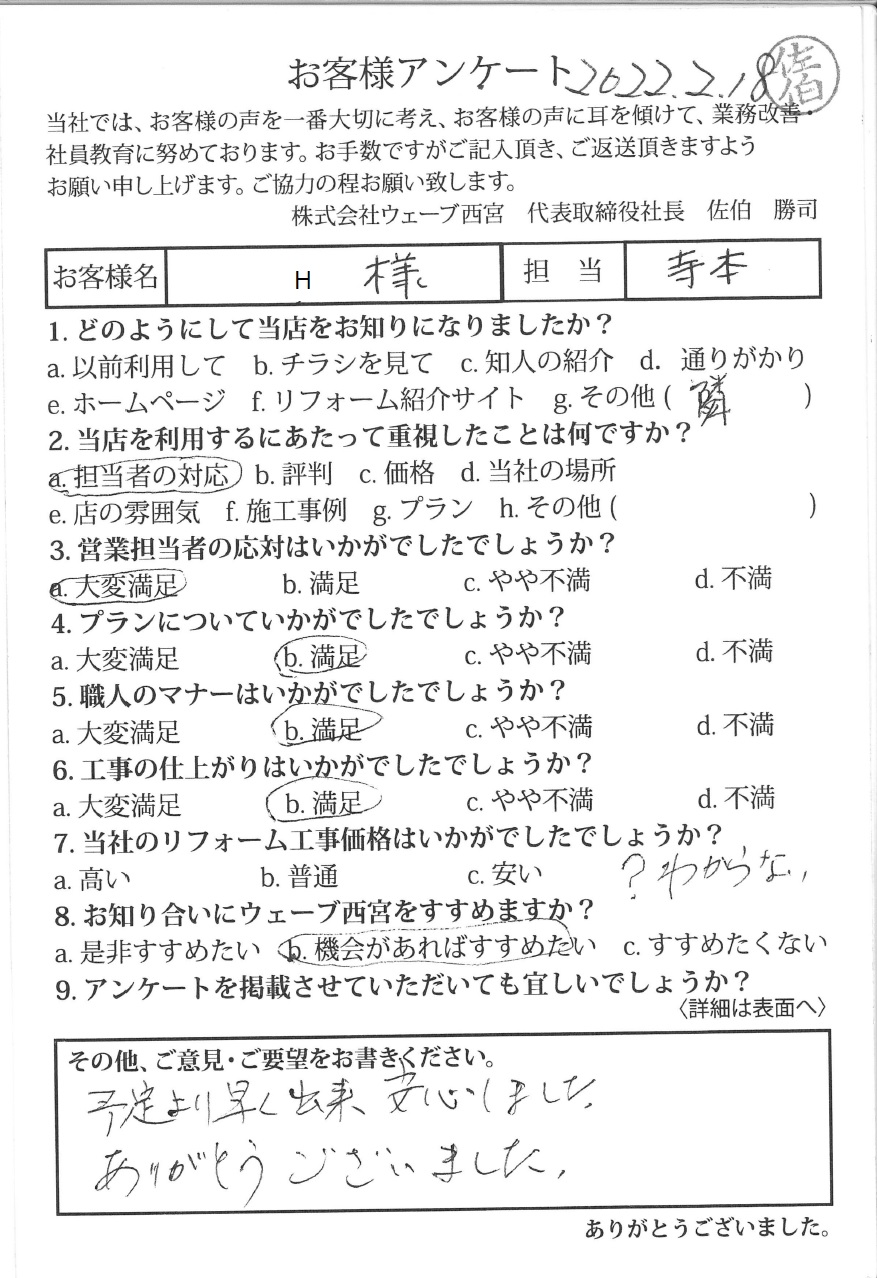 お客様アンケート 2022.2.18 佐伯
当社では、お客様の声を一番大切に考え、お客様の声に耳を傾けて、業務改善・
社員教育に努めております。お手数ですがご記入頂き、ご返送頂きますよう
お願い申し上げます。ご協力の程お願い致します。
株式会社ウェーブ西宮 代表取締役社長 佐伯 勝司
お客様名 H 様 担当 寺本
1. どのようにして当店をお知りになりましたか？
a. 以前利用して b. チラシを見て c. 知人の紹介 d. 通りがかり
e. ホームページ f. リフォーム紹介サイト g. その他 ( 隣 )
2. 当店を利用するにあたって重視したことは何ですか？
a. 担当者の対応 b. 評判 c. 価格 d. 当社の場所
e. 店の雰囲気 f. 施工事例 g. プラン h. その他 ( )
3. 営業担当者の応対はいかがでしたでしょうか？
a. 大変満足 b. 満足 c. やや不満 d. 不満
4. プランについていかがでしたでしょうか？
a. 大変満足 b. 満足 c. やや不満 d. 不満
5. 職人のマナーはいかがでしたでしょうか？
a. 大変満足 b. 満足 c. やや不満 d. 不満
6. 工事の仕上がりはいかがでしたでしょうか？
a. 大変満足 b. 満足 c. やや不満 d. 不満
7. 当社のリフォーム工事価格はいかがでしたでしょうか？
a. 高い b. 普通 c. 安い ？わからない
8. お知り合いにウェーブ西宮をすすめますか？
a. 是非すすめたい b. 機会があればすすめたい c. すすめたくない
9. アンケートを掲載させていただいても宜しいでしょうか？
〈詳細は表面へ〉
その他、ご意見・ご要望をお書きください。
予定より早く出来、安心しました。
ありがとうございました。
ありがとうございました。